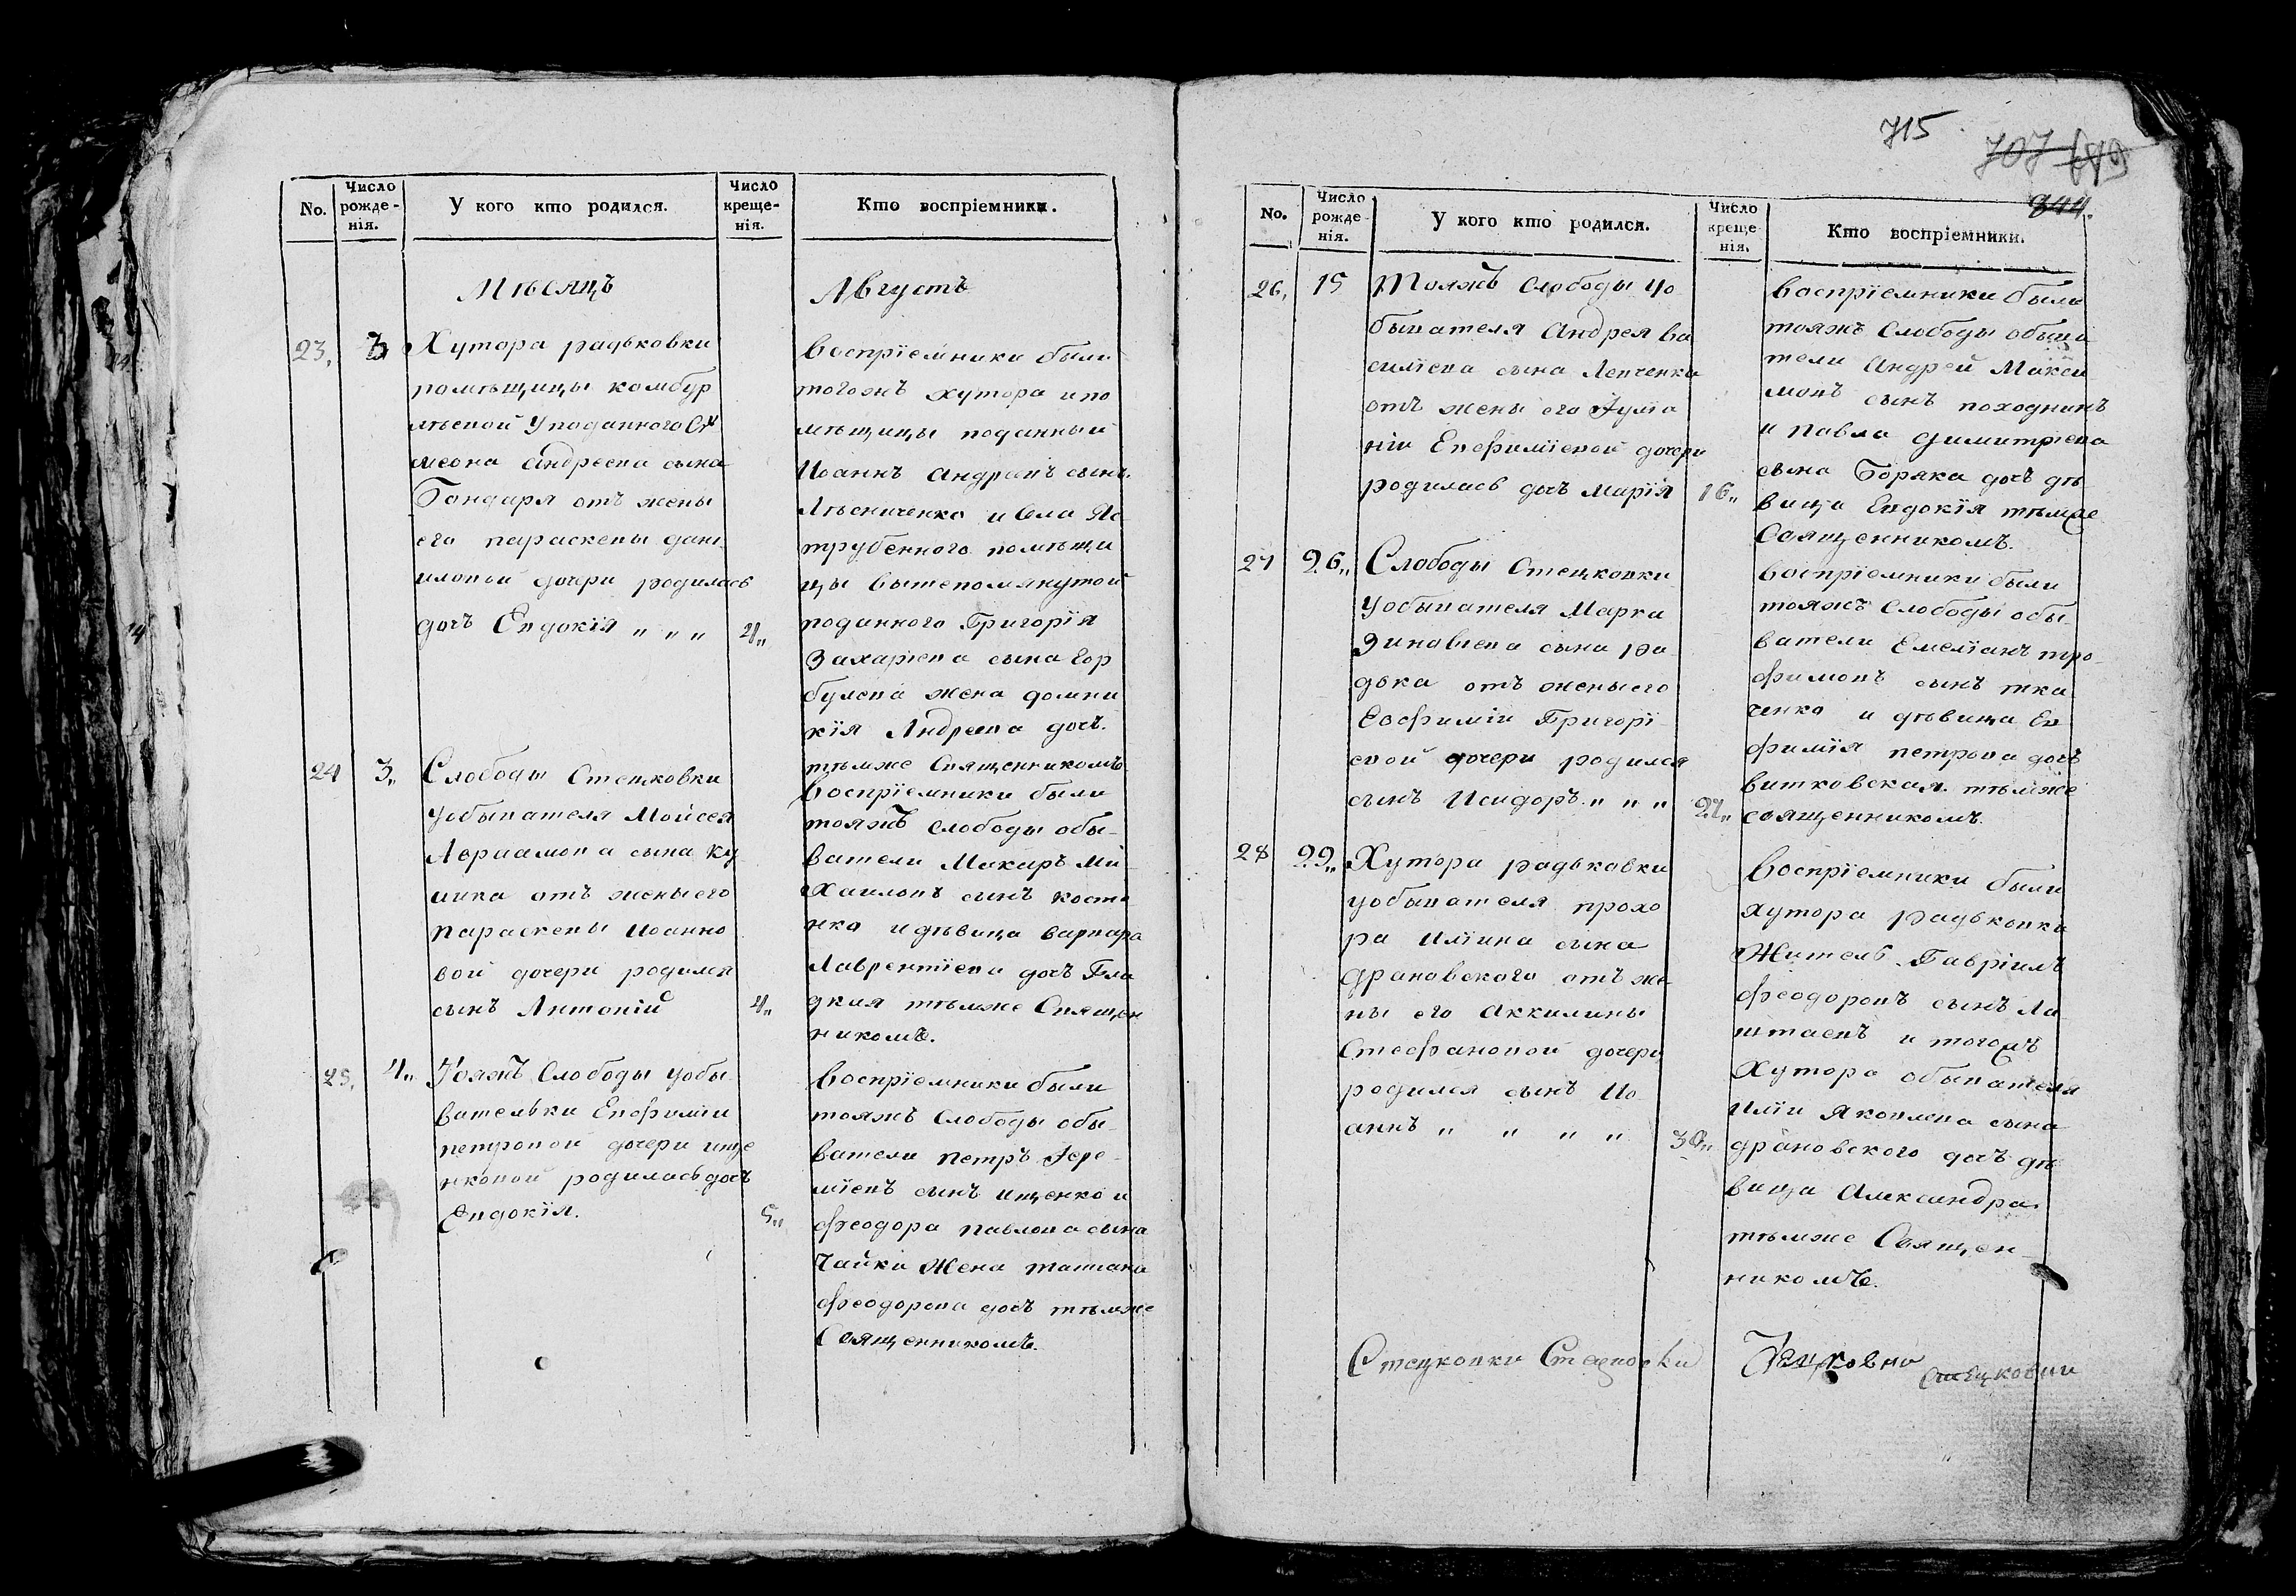 No.
Число рожде-нія.
У кого кто родился.
Число креще-нія.
Кто воспріемники.
Мѣсяцъ
Августъ
23,
Хутора радьковки
помѣщицы комбур
лѣевой уподанного Си
меона андреева сына
Бондаря отъ жены
его параскевы дани
иловой дочери родилась
дочь Евдокія „ „ „
4„
воспріемники были
тогожъ хутора ипо
мѣщицы поданный
Иоаннъ андреевъ сынъ
Лѣсниченко и села Яс
трубенного помѣщи
цы вышепомянутой
поданного Григорія
Захаріева сына Гор
булева жена домни
кія Андреева дочь.
тѣмже Священникомъ
24
3„
Слободы Стецковки
уобывателя Мойсея
Авраамова сына ку
лика отъ жены его
параскевы иоанно
вой дочери родился
сынъ Антоній
4„
воспріемники были
тояжъ слободы обы-
ватели Макаръ Ми
хаиловъ сынъ кости
нко идѣвица варвара
Лаврентіева дочь Гла
дкая тѣмже Священ
никомъ.
25,
4„
Тояжъ Слободы уобы
вательки Евфиміи
петровой дочери ище
нковой родиласьдочь
Евдокія.
5„
воспріемники были
тояжъ слободы обы-
ватели петръ Іере-
міевъ сынъ ищенко и
феодора павлова сына
Чайки жена татиана
феодорова дочь тѣмже
Священникомъ.
715
707
844.
No.
Число рожде-нія.
У кого кто родился.
Число креще-нія.
Кто воспріемники.
26,
15
Тояжъ слободы уо
бывателя андрея ва
силіева сына Левченка
отъ жены его Іулiа
ніи Евфиміевой дочери
родилась дочь марія
16„
воспріемники были
тояжъ слободы обыва
тели андрей Макси
мовъ сынъ походнинъ
и павла димитріева
сына Боряка дочь дѣ-
вица Евдокія тѣмже
Священникомъ.
27
26„
Слободы Стецковки
уобывателя Марка
Зиновіева сына ра
дька отъ жены его
Евфиміи Григорі
евой дочери родился
сынъ Исидоръ „ „ „
27„
воспріемники были
тояжъ слободы обы
ватели Емеліанъ тро-
фимовъ сынъ тка
ченко и дѣвица Ев
фимія петрова дочь
витковская тѣмже
священникомъ.
28
29„
Хутора радьковки
уобывателя прохо
ра иліина сына
драновского отъ же
ны его Аккилины
Стефановой дочери
родился сынъ Ио
аннъ „ „ „ „
30„
воспріемники были
хутора радьковки
Житель Гавріилъ
феодоровъ сынъ Ла
штаевъ и тогожъ
Хутора обывателя
иліи яковлева сына
драновского дочь дѣ
вица александра
тѣмже Священ-
никомъ.
Стецковки
Стецковки